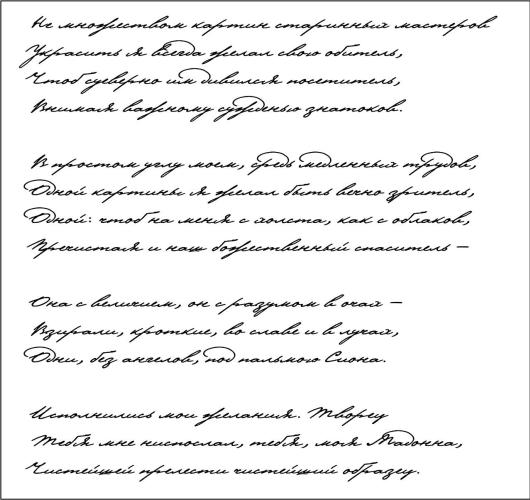 Не множеством картин старинных мастеров
Украсить я всегда желал свою обитель,
Чтоб суеверно им дивился посетитель,
Внимая важному сужденью знатоков.

В простом углу моем, средь медленных трудов,
Одной картины я желал быть вечно зритель,
Одной: чтоб на меня с холста, как с облаков,
Пречистая и наш божественный спаситель —

Она с величием, он с разумом в очах —
Взирали, кроткие, во славе и в лучах,
Одни, без ангелов, под пальмою Сиона.

Исполнились мои желания. Творец
Тебя мне ниспослал, тебя, моя Мадонна,
Чистейшей прелести чистейший образец.